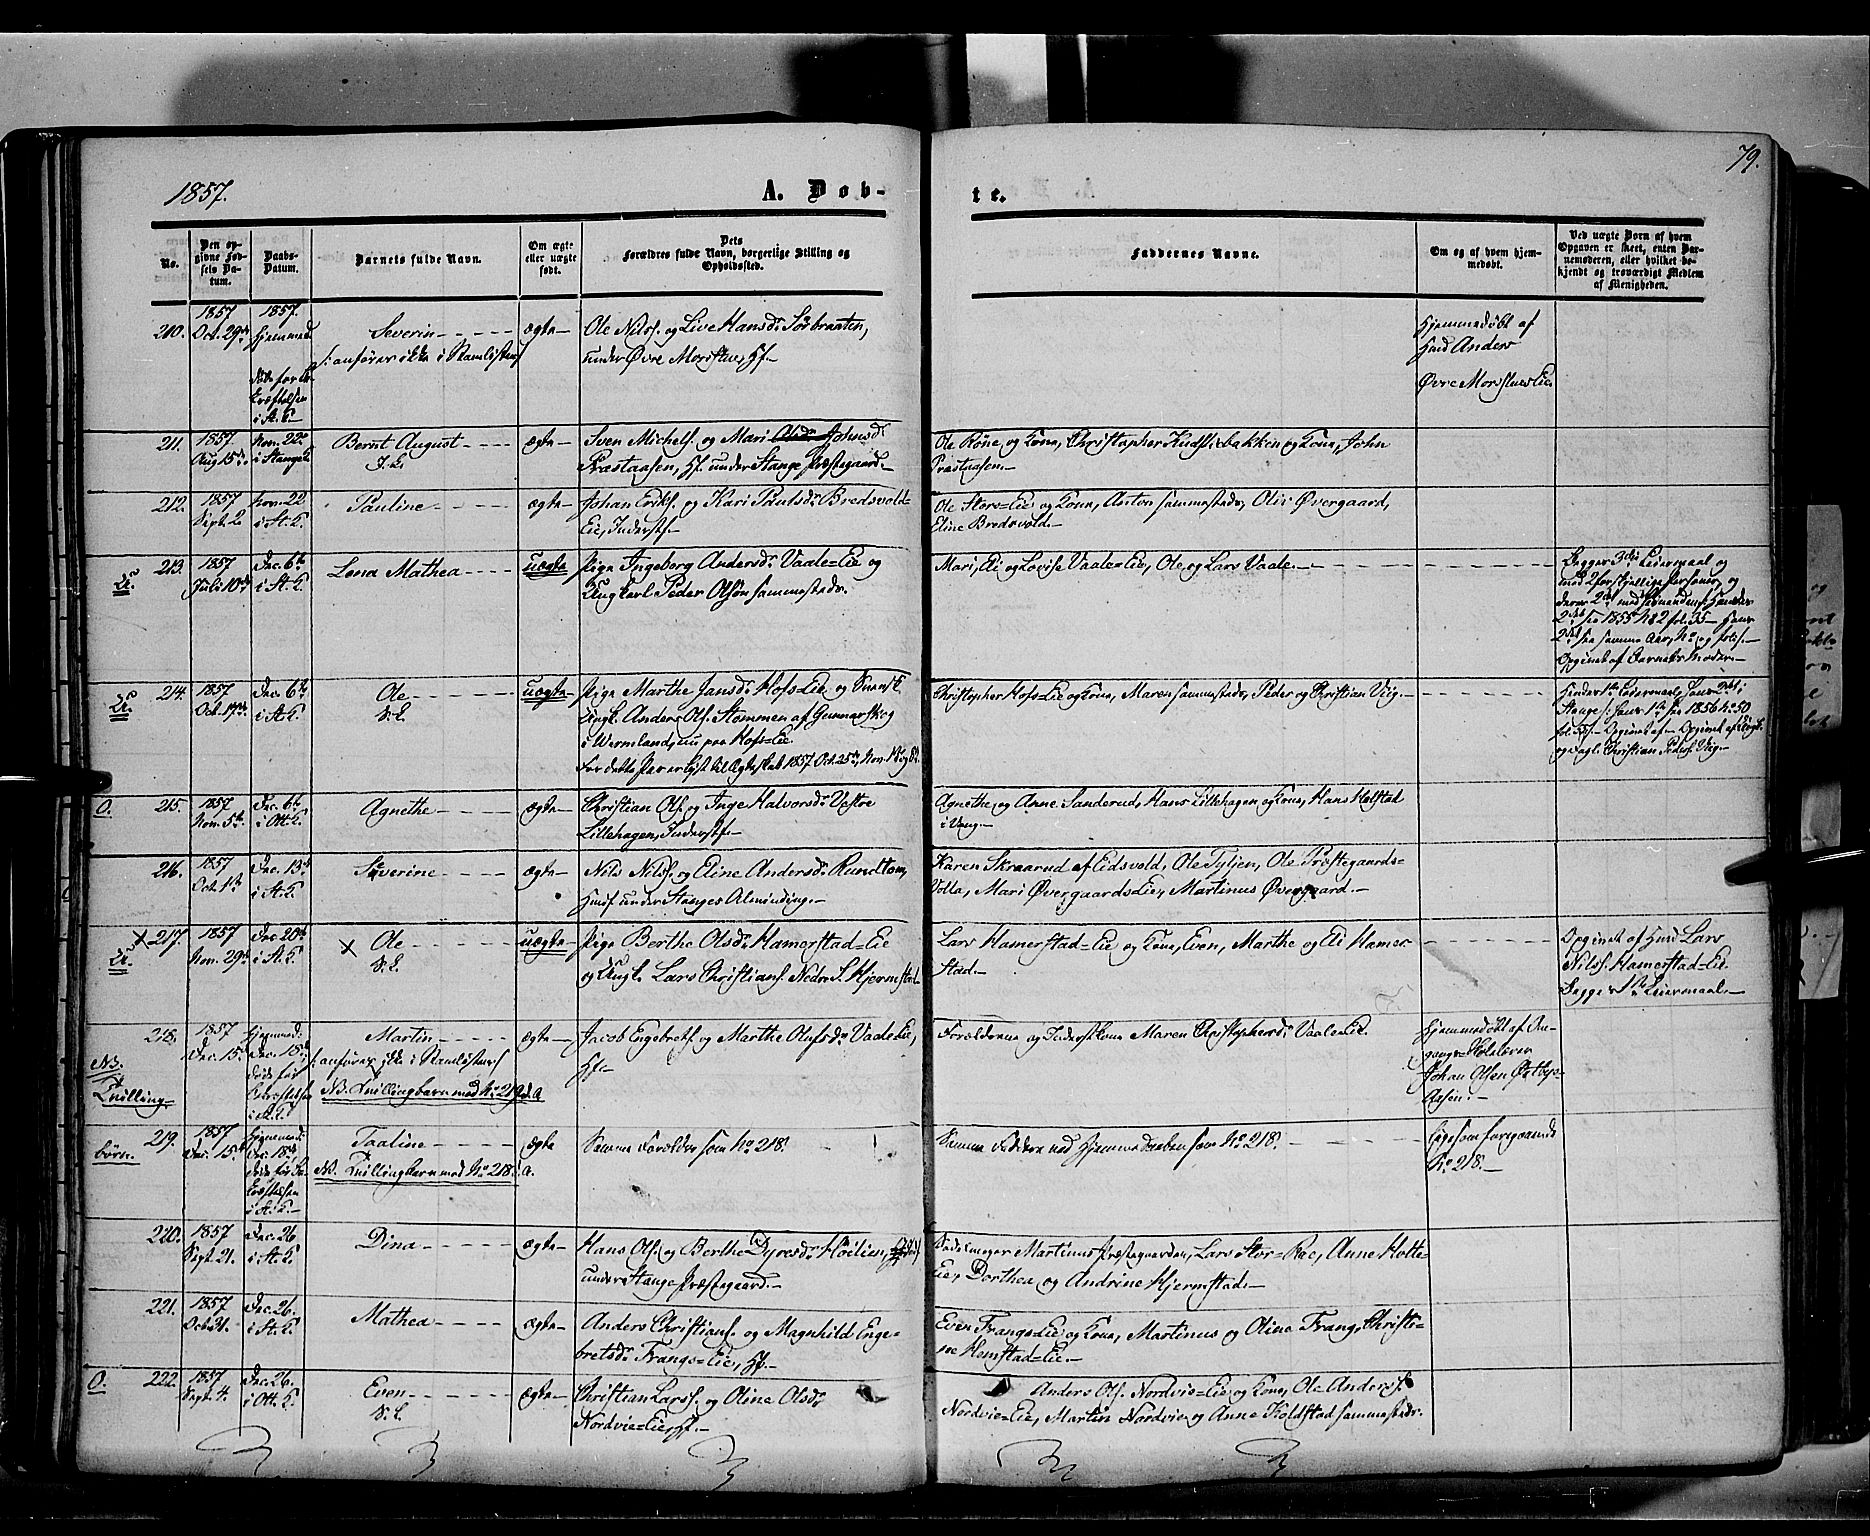 79.
1857.
A. Døb-
te.
No.
Den op-
givne Fød-
sels Da-
tum.
Daabs-
Datum.
Barnets fulde Navn.
Om ægte
eller uægte
født.
Dets
Forældres fulde Navn, borgerlige Stilling og
Opholdssted.
Faddernes Navne.
Om og af hvem hjem-
medøbt.
Ved uægte Børn af hvem
Opgaven er skeet, enten Bar-
nemoderen, eller hvilket be-
kjendt og troværdigt Medlem
af Menigheden.
210.
1857
Oct. 29
1857.
Hjemmed.
Severin
anføres ikke i Navnlisten
ægte
Ole Nilss. og Live Hansd. Sørbraaten,
under Øvre Morsthue, Hf.
Hjemmedøbt af
Hmd Anders
Øvre Morsthues Eie
211.
1857.
Aug 15
Nov. 22
i Stange K
Bernt August
ægte
Sven Michels. og Mari Johnsd.
Præstaasen, Hf. under Stange Præstegaard.
Ole Røne og Kone, Christopher Kudsl.bakken og Kone, John
Præstaasen.
212.
1857
Sept. 2
Nov. 22
i St. K
Pauline
ægte
Johan Eriks. og Kari Paulsd. Bredvold-
Eie, Inderstf.
Ole Stors-Eie og Kone, Anton sammesteds, Oliv Øvergaard,
Eline Bredvold.
U.
213.
1857
Juli 10
Dec. 6
i St. K
Lena Mathea
uægte
Pige Ingeborg Andersd. Vaale-Eie og
Ungkarl Peder Olsøn sammesteds.
Mari, Eli og Lovise Vaale-Eie, Ole og Lars Vaale.
Begges 3die Leiermaal
med 2 forskjellige Personer, og
2det fra 1855 No 82 fol. 35
Opgivet af Barnets Moder.
U.
214.
1857
Oct. 17
Dec. 6
i St. K
Ole
uægte
Pige Marthe Jansd. Hofs-Eie og Svensk
Ungk. Anders Ols. Stommen af Gunnarskog
i Wermland, nu paa Hofs-Eie.
For dette Par er lyst til Ægteskab 1857 Oct. 25, Nov. 1 og 8.
Christopher Hofs-Eie og Kone, Maren sammesteds, Peder og Christian Vig.
Hendes 1te Leiermaal, hans 2det i
Stange
O.
215.
1857
Nov. 5
Dec. 6
i Ott. K
Agnethe
ægte
Christian Ols. og Inge Halvorsd. Vestre
Lillehagen, Inderstf.
Agnethe og Anne Sanderud, Hans Lillehagen og Kone, Hans Holstad
i Vang.
216.
1857
Oct. 1
Dec. 13
i St. K
Severine
ægte
Nils Nilss. og Eline Andersd. Rundtom,
Hmf. under Stanges Alminding.
Karen Skraarud af Eidsvold, Ole Tyljen, Ole Præstegaards-
Volla, Mari Øvergaards-Eie, Martinus Øvergaard.
U.
x 217.
1857
Nov. 29
Dec 20
i St. K
x Ole
uægte
Pige Berthe Olsd. Hamerstad-Eie
og Ungk. Lars Christians. Nedre S. Hjermstad.
Lars Hamerstad-Eie og Kone, Even, Marthe og Eli Hamer-
stad.
Opgivet af Hmd Lars
Nilss. Hamerstad-Eie.
Begges 1te Leiermaal.
NB.
Tvilling
218.
1857
Dec. 15
Hjemmed.
Dec. 18
Martin
anføres ikke i Navnlisten
NB. Tvillingbarn med No 219
ægte
Jacob Engebrets. og Marthe Olufsd. Vaale-Eie,
Hf.
Forældrene og Inderstkone Maren Christophersd. Vaale-Eie.
Hjemmedøbt af Om-
gangs-Skolelærer
Johan Olsen Østby-
Aasen.
børn.
219.
1857
Dec. 15
Hjemmed.
Dec. 18
Taaline
NB. Tvillingbarn med No 218
ægte
Samme Forældre som No 218.
Samme Faddere ved Hjemmedaaben som No 218.
Ligesom foregaaende
No 218.
220.
1857
Sept. 21.
Dec. 26
i St. K
Dina
ægte
Hans Ols. og Berthe Dyresd. Høilien,
under Stange Præstegaard.
Sadelmager Martinus Præstegaarden, Lars Stor-Ree, Anne Holte-
Eie, Dorthea og Andrine Hjermstad.
221.
1857
Oct. 31.
Dec. 26.
i St. K
Mathea
ægte
Anders Christians. og Magnhild Enge-
bretsd. Frangs-Eie, Hf.
Even Frangs-Eie og Kone, Martinus og Oline Frang, Christi-
ne Hemstad-Eie.
O.
222.
1857
Sept. 4.
Dec. 26.
i Ott. K
Even
ægte
Christian Larss. og Oline Olsd.
Nordvie-Eie, Hf.
Anders Ols. Nordvie-Eie og Kone, Ole Anders.
Nordvie-Eie, Martin Nordvie og Anne Koldstad sammesteds.